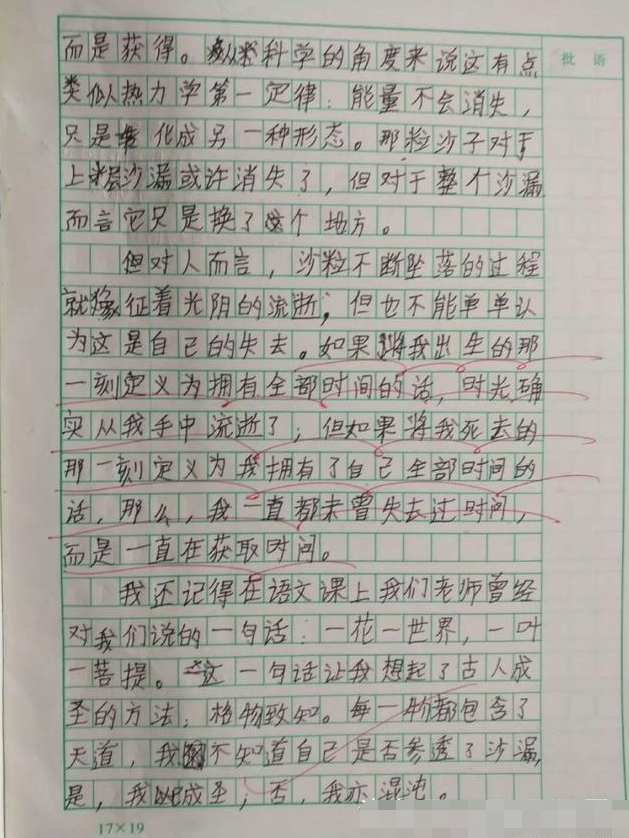 批 语
而是获得。从科学的角度来说这有点
类似热力学第一定律：能量不会消失，
只是转化成另一种形态。那粒沙子对于
上半层沙漏或许消失了，但对于整个沙漏
而言它只是换了个地方。
但对人而言，沙粒不断坠落的过程
就像征着光阴的流逝，但也不能单单认
为这是自己的失去。如果将我出生的那
一刻定义为拥有全部时间的话，时光确
实从我手中流逝了；但如果将我死去的
那一刻定义为我拥有了自己全部时间的
话，那么，我一直都未曾失去过时间，
而是一直在获取时间。
我还记得在语文课上我们老师曾经
对我们说的一句话：一花一世界，一叶
一菩提。这一句话让我想起了古人成
圣的方法：格物致知。每一物都包含了
天道，我不知道自己是否参透了沙漏，
是，我成圣；否，我亦混沌。
17×19